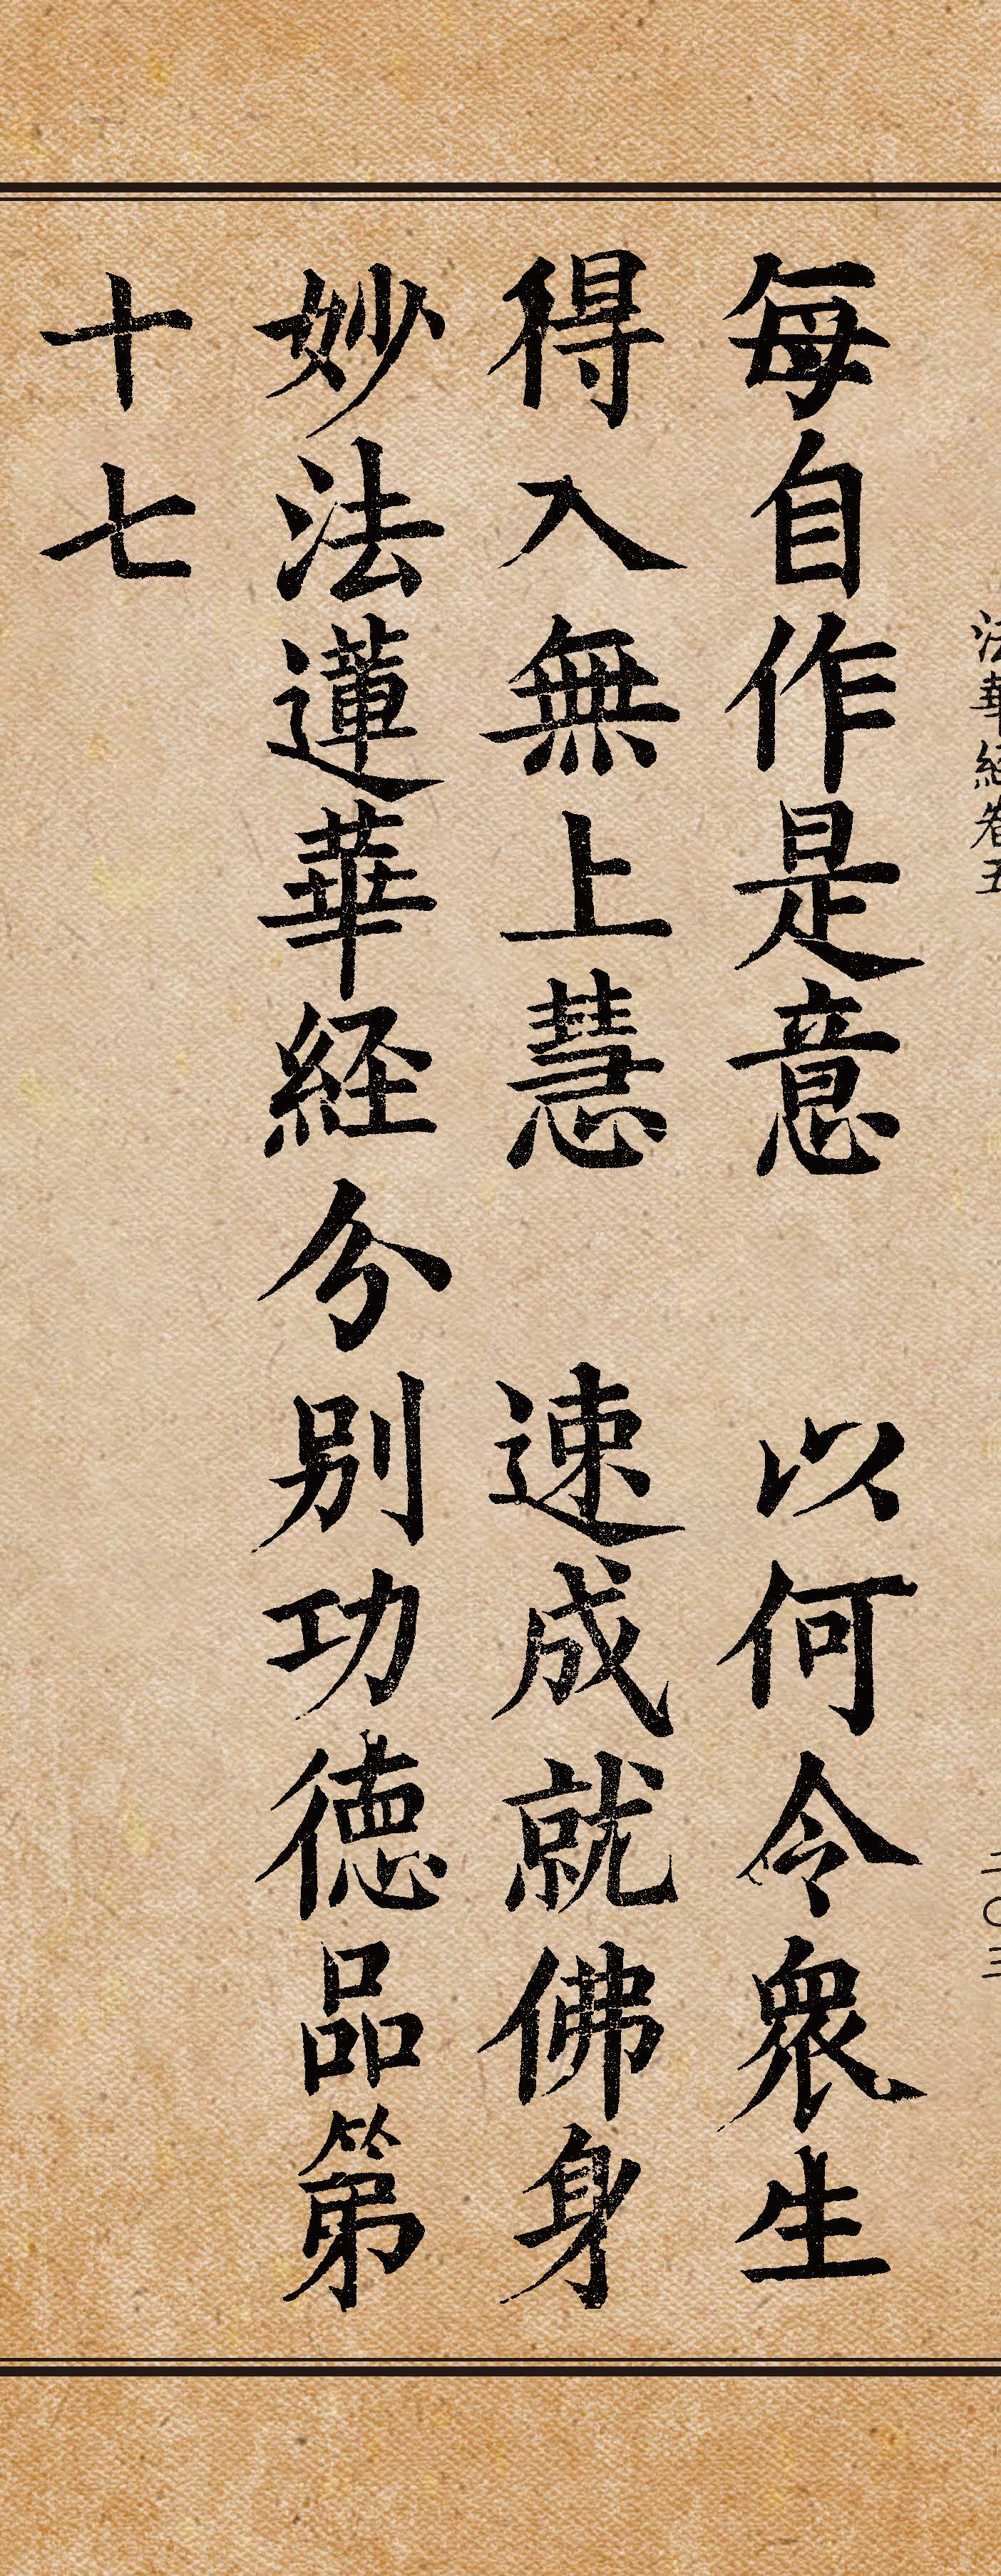 法華経巻五
二〇三
每自作是意　以何令衆生
得入無上慧　速成就佛身
妙法蓮華経分别功徳品第
十七